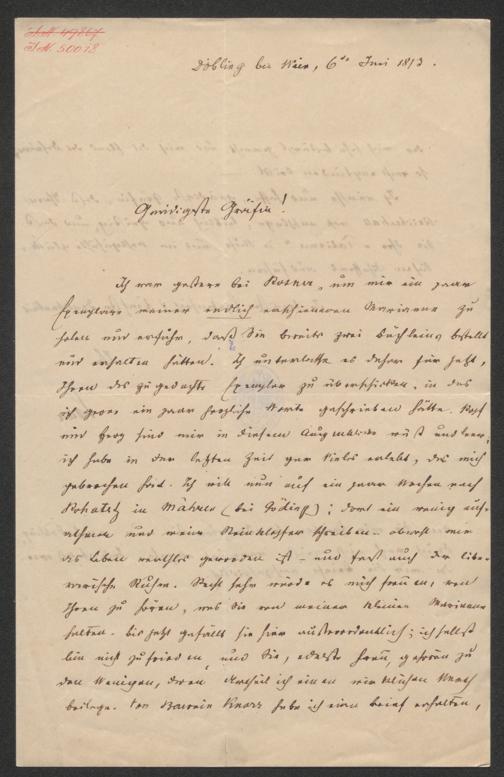 I.N. 49867
I.N. 50013
Döbling bei Wien, 6ten Juni 1873.
Gnädigste Gräfin!
Ich war gestern bei Rosner, um mir ein paar
Exemplare meiner endlich erschienenen Marianne zu
holen und erfuhr, daß Sie bereits zwei Büchleins bestellt
und erhalten hätten. Ich unterlasse es daher für jetzt,
Ihnen das zugedachte Exemplar zu überschicken, in das
ich gerne ein paar herzliche Worte geschrieben hätte. Kopf
und Herz sind mir in diesem Augenblicke wüst und leer,
ich habe in der letzten Zeit gar Vieles erlebt, das mich
gebrochen hat. Ich will nun auf ein paar Wochen nach
Rohatetz in Mähren (bei Göding); dort ein wenig auf-
athmen und meine Steinklopfer schreiben – obwohl mir
das Leben werthlos geworden ist – und fast auch der lite-
rarische Ruhm. Recht sehr würde es mich freuen, von
Ihnen zu hören, was Sie von meiner kleinen Marianne
halten. Bis jetzt gefällt sie hier außerordentlich; ich selbst
bin nicht zufrieden, und Sie, edelste Frau, gehören zu
den Wenigen, deren Urtheil ich einen wirklichen Werth
beilege. Von Baronin Knorr habe ich einen Brief erhalten,